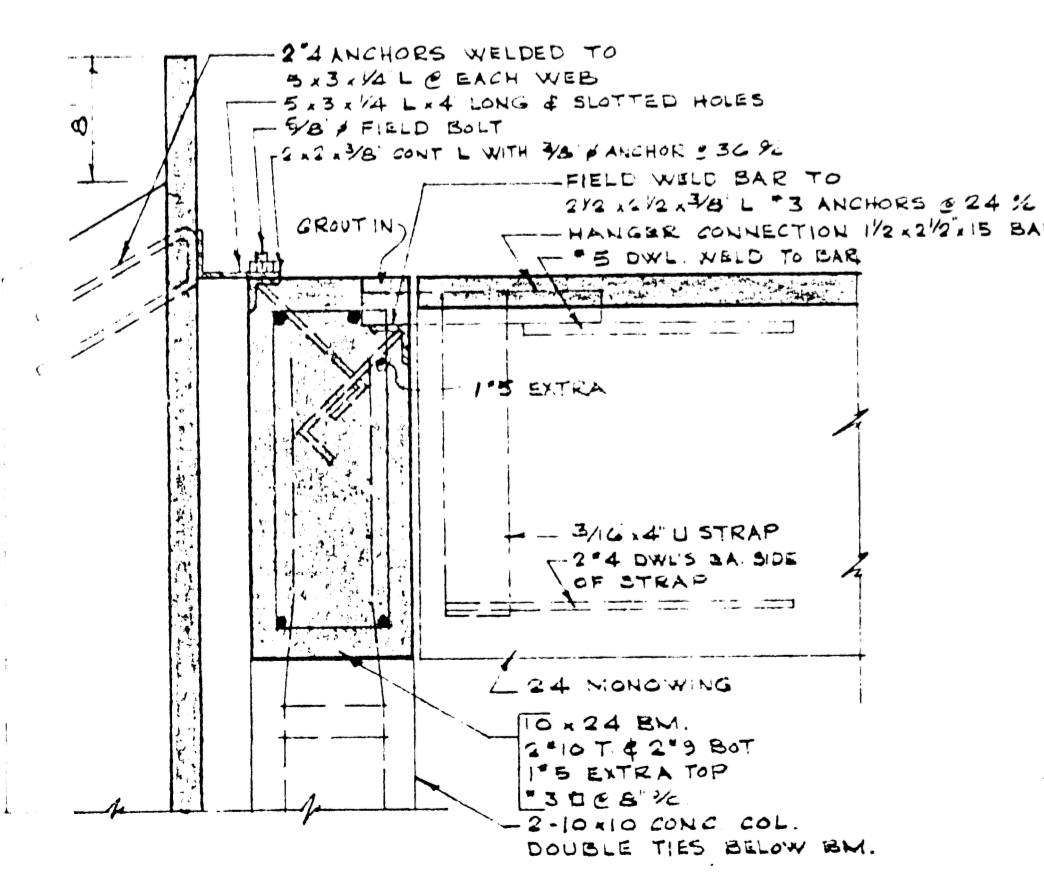 2 #4 ANCHORS WELDED TO
5 x 3 x 1/4 L @ EACH WEB
5 x 3 x 1/4 L x 4 LONG & SLOTTED HOLES
5/8" ø FIELD BOLT
2 x 2 x 3/8" CONT L WITH 3/8 ø ANCHOR @ 36 o/c
FIELD WELD BAR TO
2 1/2 x 2 1/2 x 3/8" L #3 ANCHORS @ 24 o/c
HANGER CONNECTION 1 1/2 x 2 1/2" x 15 BA
#5 DWL. WELD TO BAR
8
GROUT IN
1 #5 EXTRA
3/16 x 4" U STRAP
2 #4 DWL'S EA. SIDE
OF STRAP
24 MONOWING
10 x 24 BM.
2 #10 T. & 2 #9 BOT
1 #5 EXTRA TOP
#3 □ @ 8" o/c
2-10 x 10 CONC. COL.
DOUBLE TIES BELOW BM.